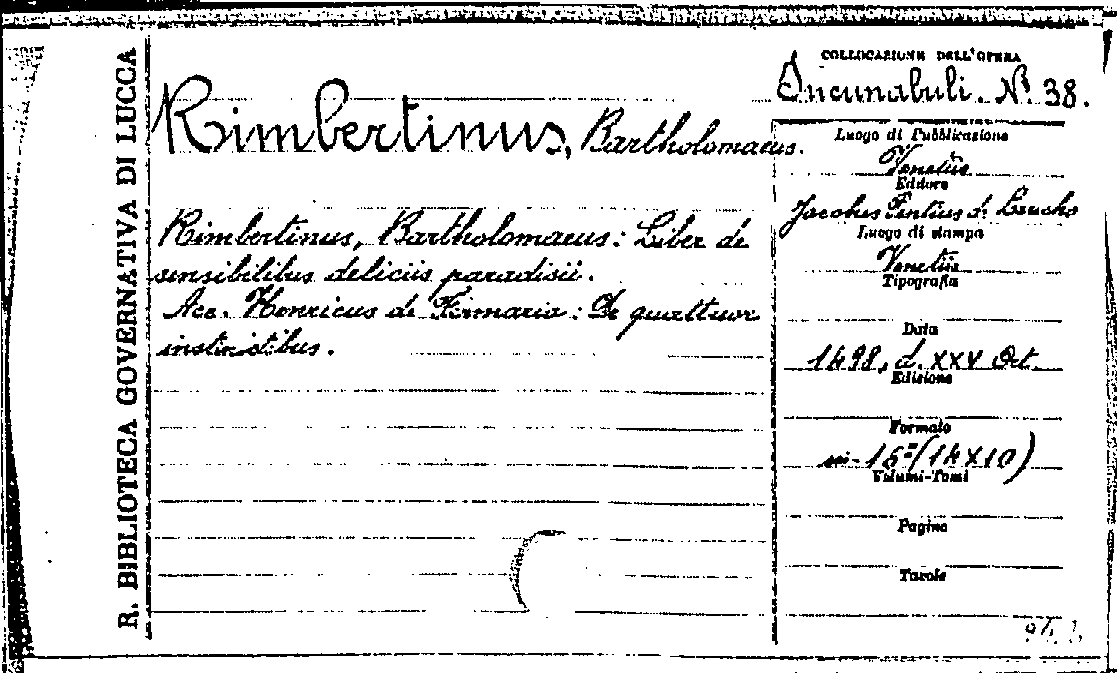 R. BIBLIOTECA GOVERNATIVA DI LUCCA
Rimbertinus, Bartholomaeus.
Rimbertinus, Bartholomaeus: Liber de
sensibilibus deliciis paradisii.
Acc. Henricus de Firmaria: De quattuor
instinctibus.
COLLOCAZIONE DELL'OPERA
Incunabuli. N. 38.
Luogo di Pubblicazione
Venetiis
Editore
Jacobus Pentius de Leucho
Luogo di stampa
Venetiis
Tipografia
Data
1498, d. XXV Oct.
Edizione
Formato
in-16° (14X10)
Volumi-Tomi
Pagine
Tavole